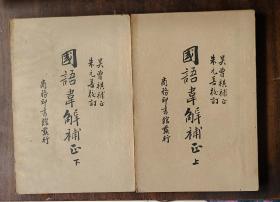 吳曾祺補正
朱元善校訂
國語韋解補正 上
商務印書館發行
吳曾祺補正
朱元善校訂
國語韋解補正 下
商務印書館發行